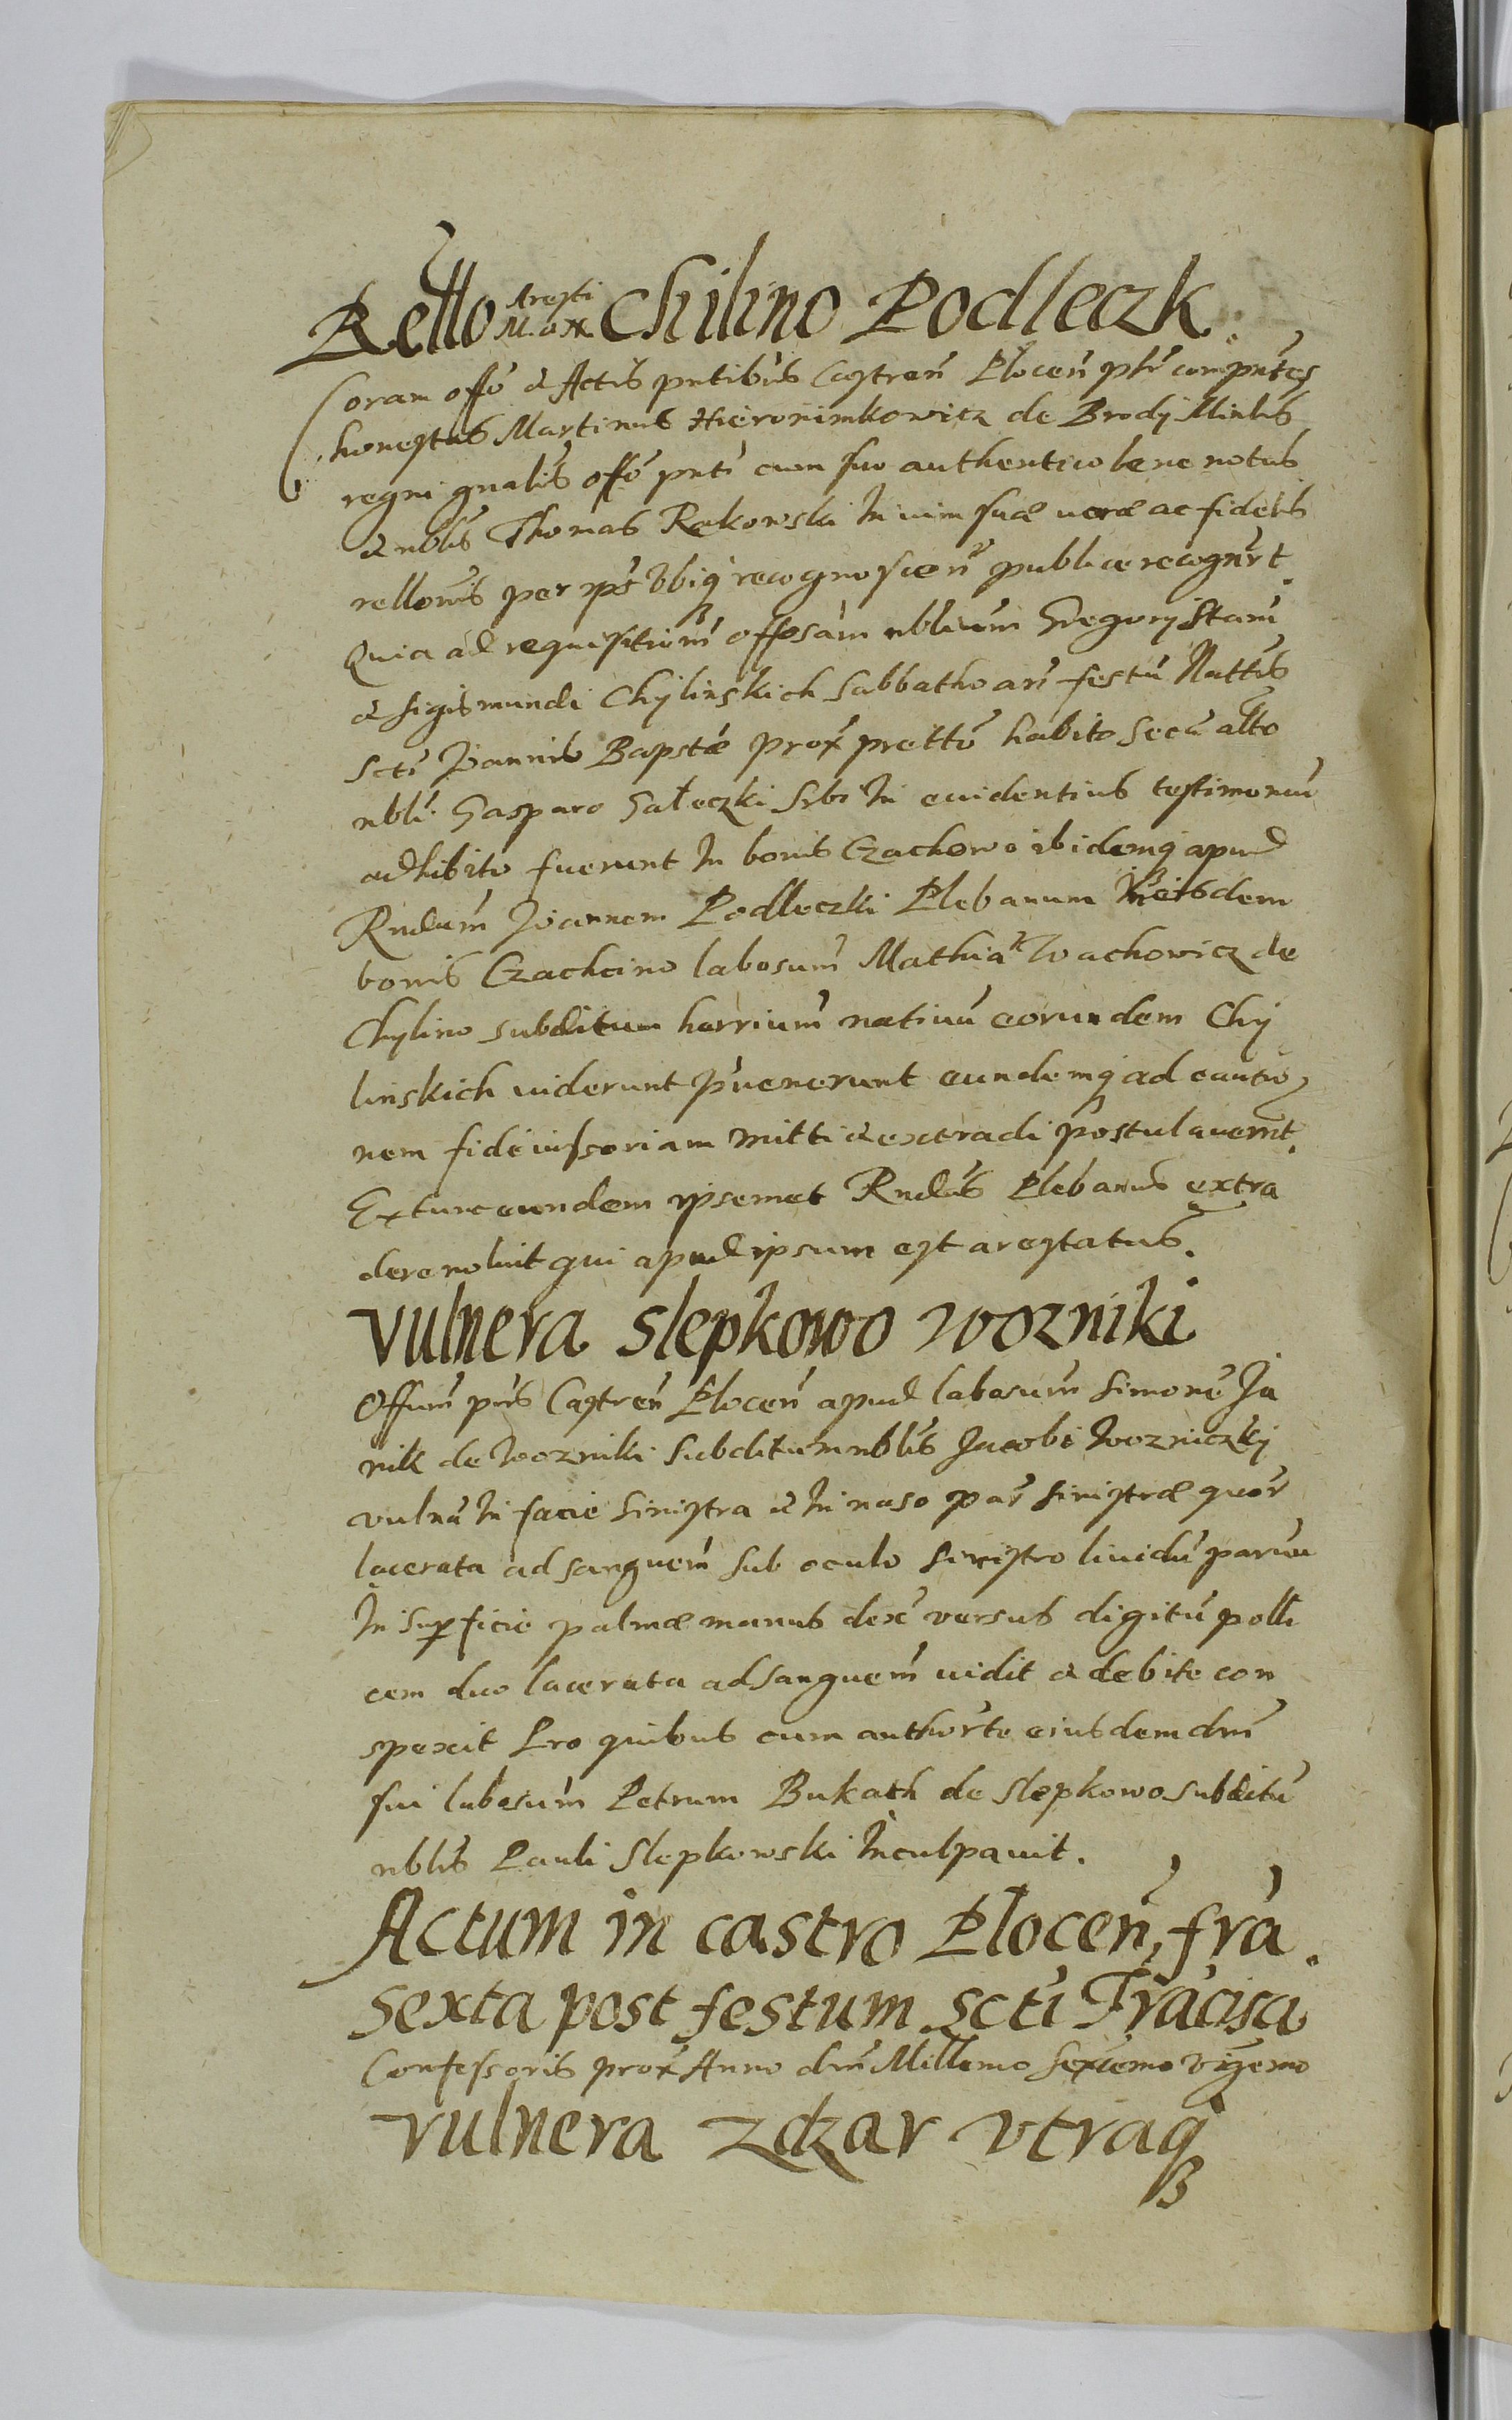 Rello Aresti Chilino Podleczk
Coram offo et Actis pntibus Castren Plocen phr compntes
honestus Martinus Hieronimkowicz de Brody Minlis
regni gnalis offo pnti cum suo authentico bene notus
et nblis Thomas Rekowski In vim suæ veræ ac fidelis
rellonis per ips vbiq recognoscen publice recognrt.
Quia ad requisitiom offosam nblium Gregorij Stani
et Sigismundi Chylinskich Sabbatho an festu Nattis
Scti Joannis Bapstæ prox pretto habito secu alto
nbli Gasparo Galeczki sibi In euidentius testimoniu
adhibito fuerunt In bonis Czachowo ibidemq apud
Rndum Joannem Podleczki Plebanum In eisdem
bonis Czachcino labosum Mathia Wachowicz de
Chylino subditum harrium natiuu eorundem Chy
linskich uiderunt Inuenerunt eundemq ad cautio
nem fideiussoriam mitti et extradi postulauernt.
Ex tunc eundem ipsemet Rndus Plebanus extra
dere noluit qui apud ipsum est arestatus.
Vulnera Slepkowo Wozniki
Offum pns Castren Plocen apud labosum Simone Ja
nik de Wozniki Subditum nblis Jacobi Wozniczky
vulna In facie Sinistra et In naso par Sinistræ quor
lacerata ad sanguem Sub oculo Sinistro liuidu paruu
In Suprficie palmæ manus dex versus digitu polli
cem duo lacerata ad sanguem uidit et debite con
spexit Pro quibus cum authorte eiusdem dni
sui labosum Petrum Bukath de Slepkowo Subditu
nblis Pauli Slepkowski Inculpauit.
Actum in castro Plocen fria
Sexta post festum Scti Francisci
Confessoris prox Anno dni Millemo Sexcemo vigemo
Vulnera Zdzar vtraq